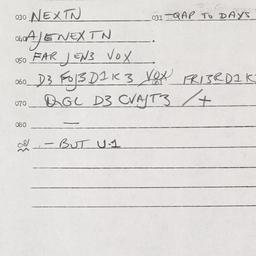 030 NEXTN 031 -GAP TO DAYS
040 AJENEXTN .
050 FAR JEN3 VOX .
060 D3 VOX FRI3RD1K
070 QGL D3 CVAJT3 /+
080 —
- BUT U-1